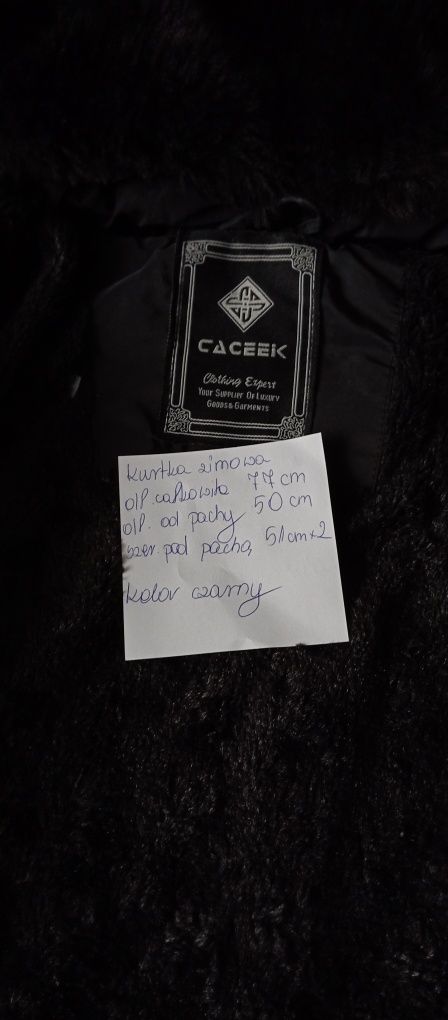 CACEEK
Clothing Expert
Your Supplier Of Luxury
Goods & Garments
kurtka zimowa
dł. całkowita 77 cm
dł. od pachy 50 cm
szer. pod pachą 51cm×2
kolor czarny